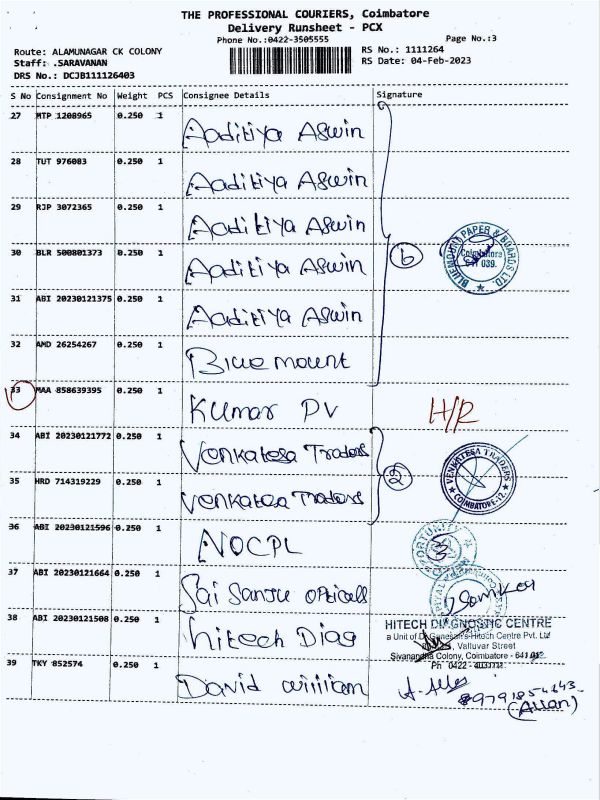 THE PROFESSIONAL COURIERS, Coimbatore
Delivery Runsheet - PCX
Phone No.:0422-3505555
Page No.:3
Route: ALAMUNAGAR CK COLONY
RS No.: 1111264
Staff: .SARAVANAN
RS Date: 04-Feb-2023
DRS No.: DCJB111126403
S No Consignment No Weight PCS Consignee Details Signature
27 MTP 1208965 0.250 1 Aaditiya Aswin
28 TUT 976083 0.250 1 Aaditiya Aswin
29 RJP 3072365 0.250 1 Aaditiya Aswin
30 BLR 500801373 0.250 1 Aaditiya Aswin
6
BLUEMOUNT PAPER & BOARDS LTD.
Coimbatore
641 039.
31 ABI 20230121375 0.250 1 Aaditiya Aswin
32 AMD 26254267 0.250 1 Bluemount
33 MAA 858639395 0.250 1 Kumar PV H/R
34 ABI 20230121772 0.250 1 Venkatesa Traders
2
VENKATESA TRADERS
COIMBATORE-12.
35 HRD 714319229 0.250 1 Venkatesa Traders
36 ABI 20230121596 0.250 1 NOCPL
37 ABI 20230121664 0.250 1 Sai Sanju opticals
38 ABI 20230121508 0.250 1 Hitech Diag
HITECH DIAGNOSTIC CENTRE
a Unit of Dr.Ganesan's Hitech Centre Pvt. Ltd
Valluvar Street
Sivanandha Colony, Coimbatore - 641 012
Ph 0422 -
39 TKY 852574 0.250 1 David william